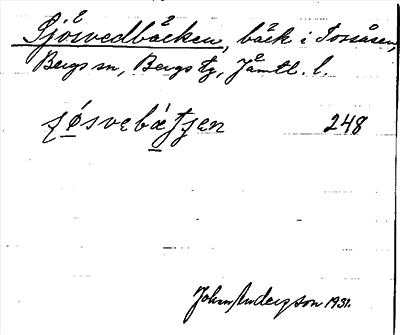 Sjösvedbäcken, bäck i Tossåsen,
Bergs sn, Bergs tg, Jämtl. l.
248
John Anderson 1931.